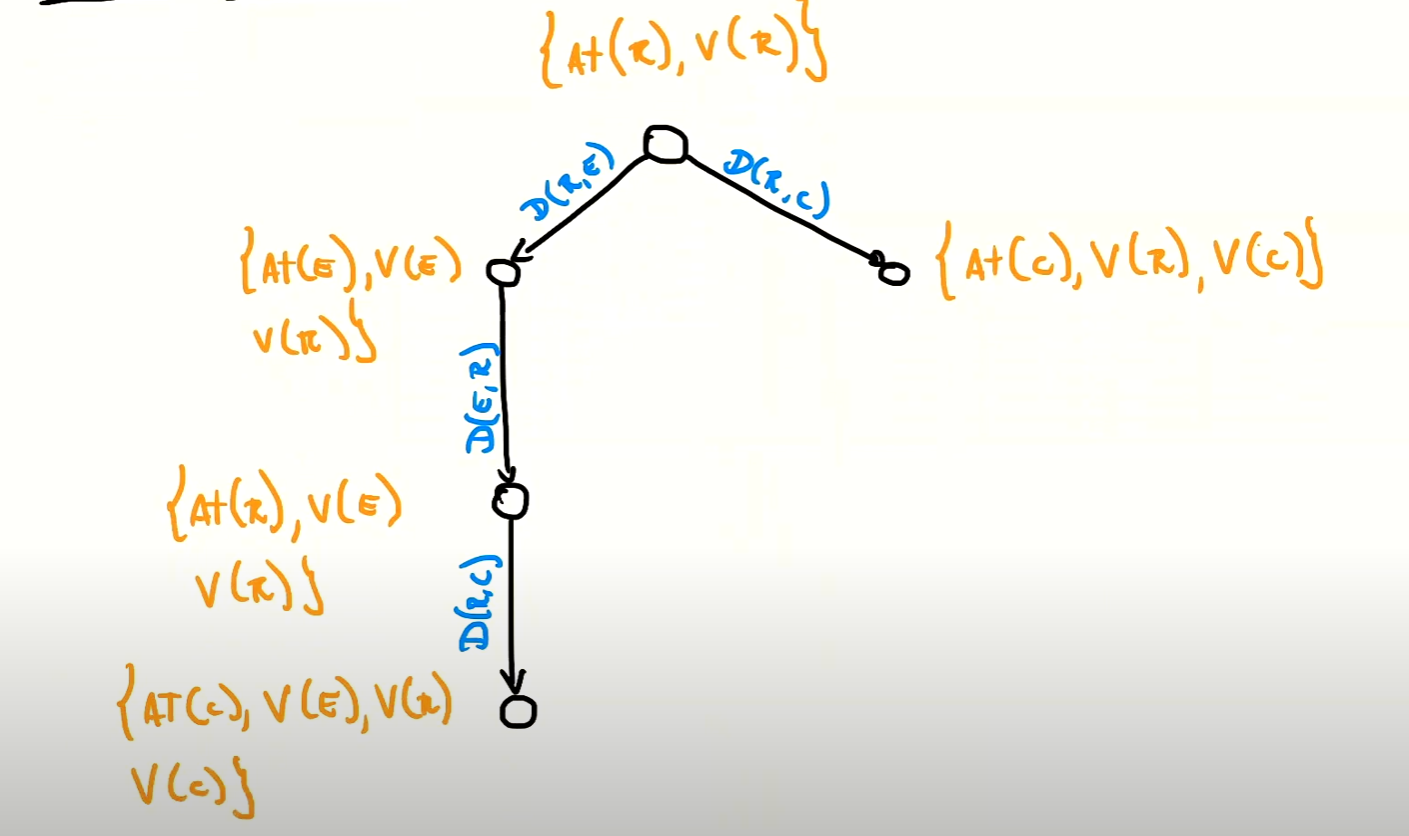 {At(R), V(R)}
D(R,E)
D(R,C)
{At(E), V(E)
V(R)}
{At(C), V(R), V(C)}
D(E,R)
{At(R), V(E)
V(R)}
D(R,C)
{AT(C), V(E), V(R)
V(C)}